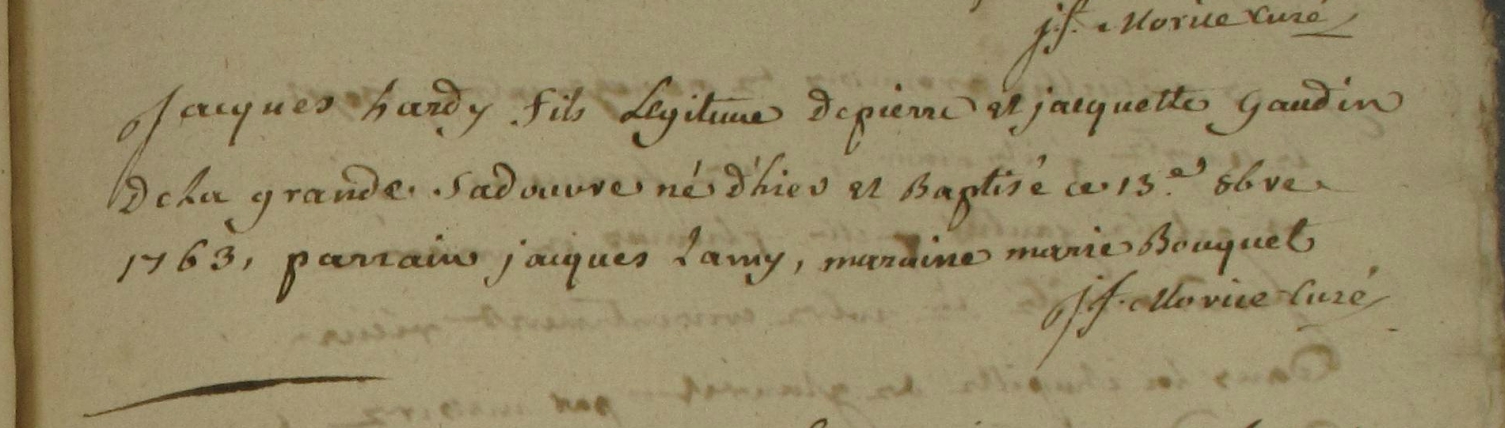 jf. Morice Curé
Jacques hardy fils Legitime de pierre et jacquette Gaudin
De La grande Sadouvre né d'hier et Baptisé ce 13.e 8bre
1763, parrain jacques Lamy, maraine marie Bouquet
jf. Morice Curé